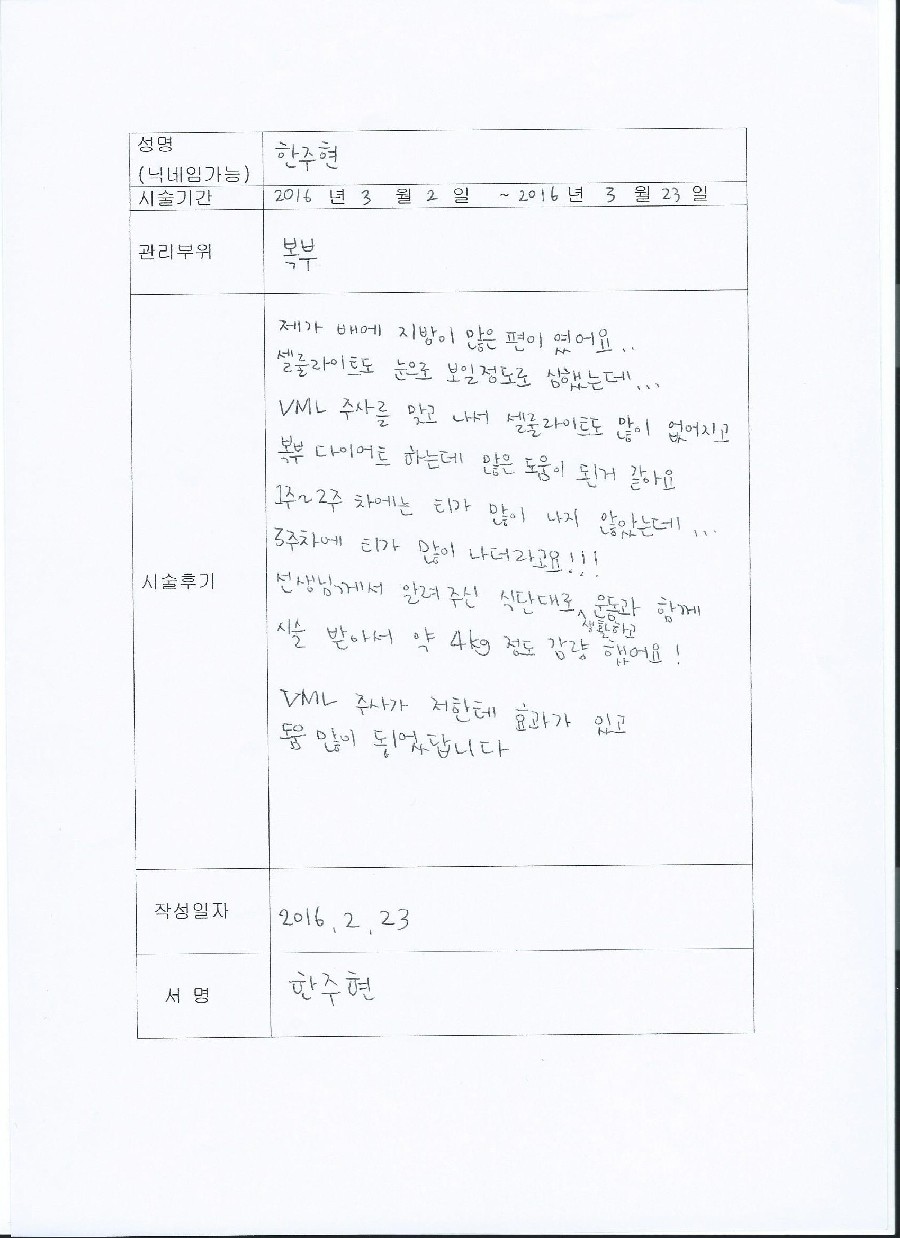 성명
(닉네임가능)
한주현
시술기간
2016 년 3 월 2 일 ~ 2016 년 3 월 23 일
관리부위
복부
시술후기
제가 배에 지방이 많은 편이 였어요..
셀룰라이트도 눈으로 보일정도로 심했는데...
VML 주사를 맞고 나서 셀룰라이트도 많이 없어지고
복부 다이어트 하는데 많은 도움이 된거 같아요
1주~2주 차에는 티가 많이 나지 않았는데 ...
3주차에 티가 많이 나더라고요!!!
선생님께서 알려주신 식단대로 운동과 함께
생활하고
시술 받아서 약 4kg 정도 감량 했어요!
VML 주사가 저한테 효과가 있고
도움 많이 되었답니다
작성일자
2016. 2. 23
서 명
한주현